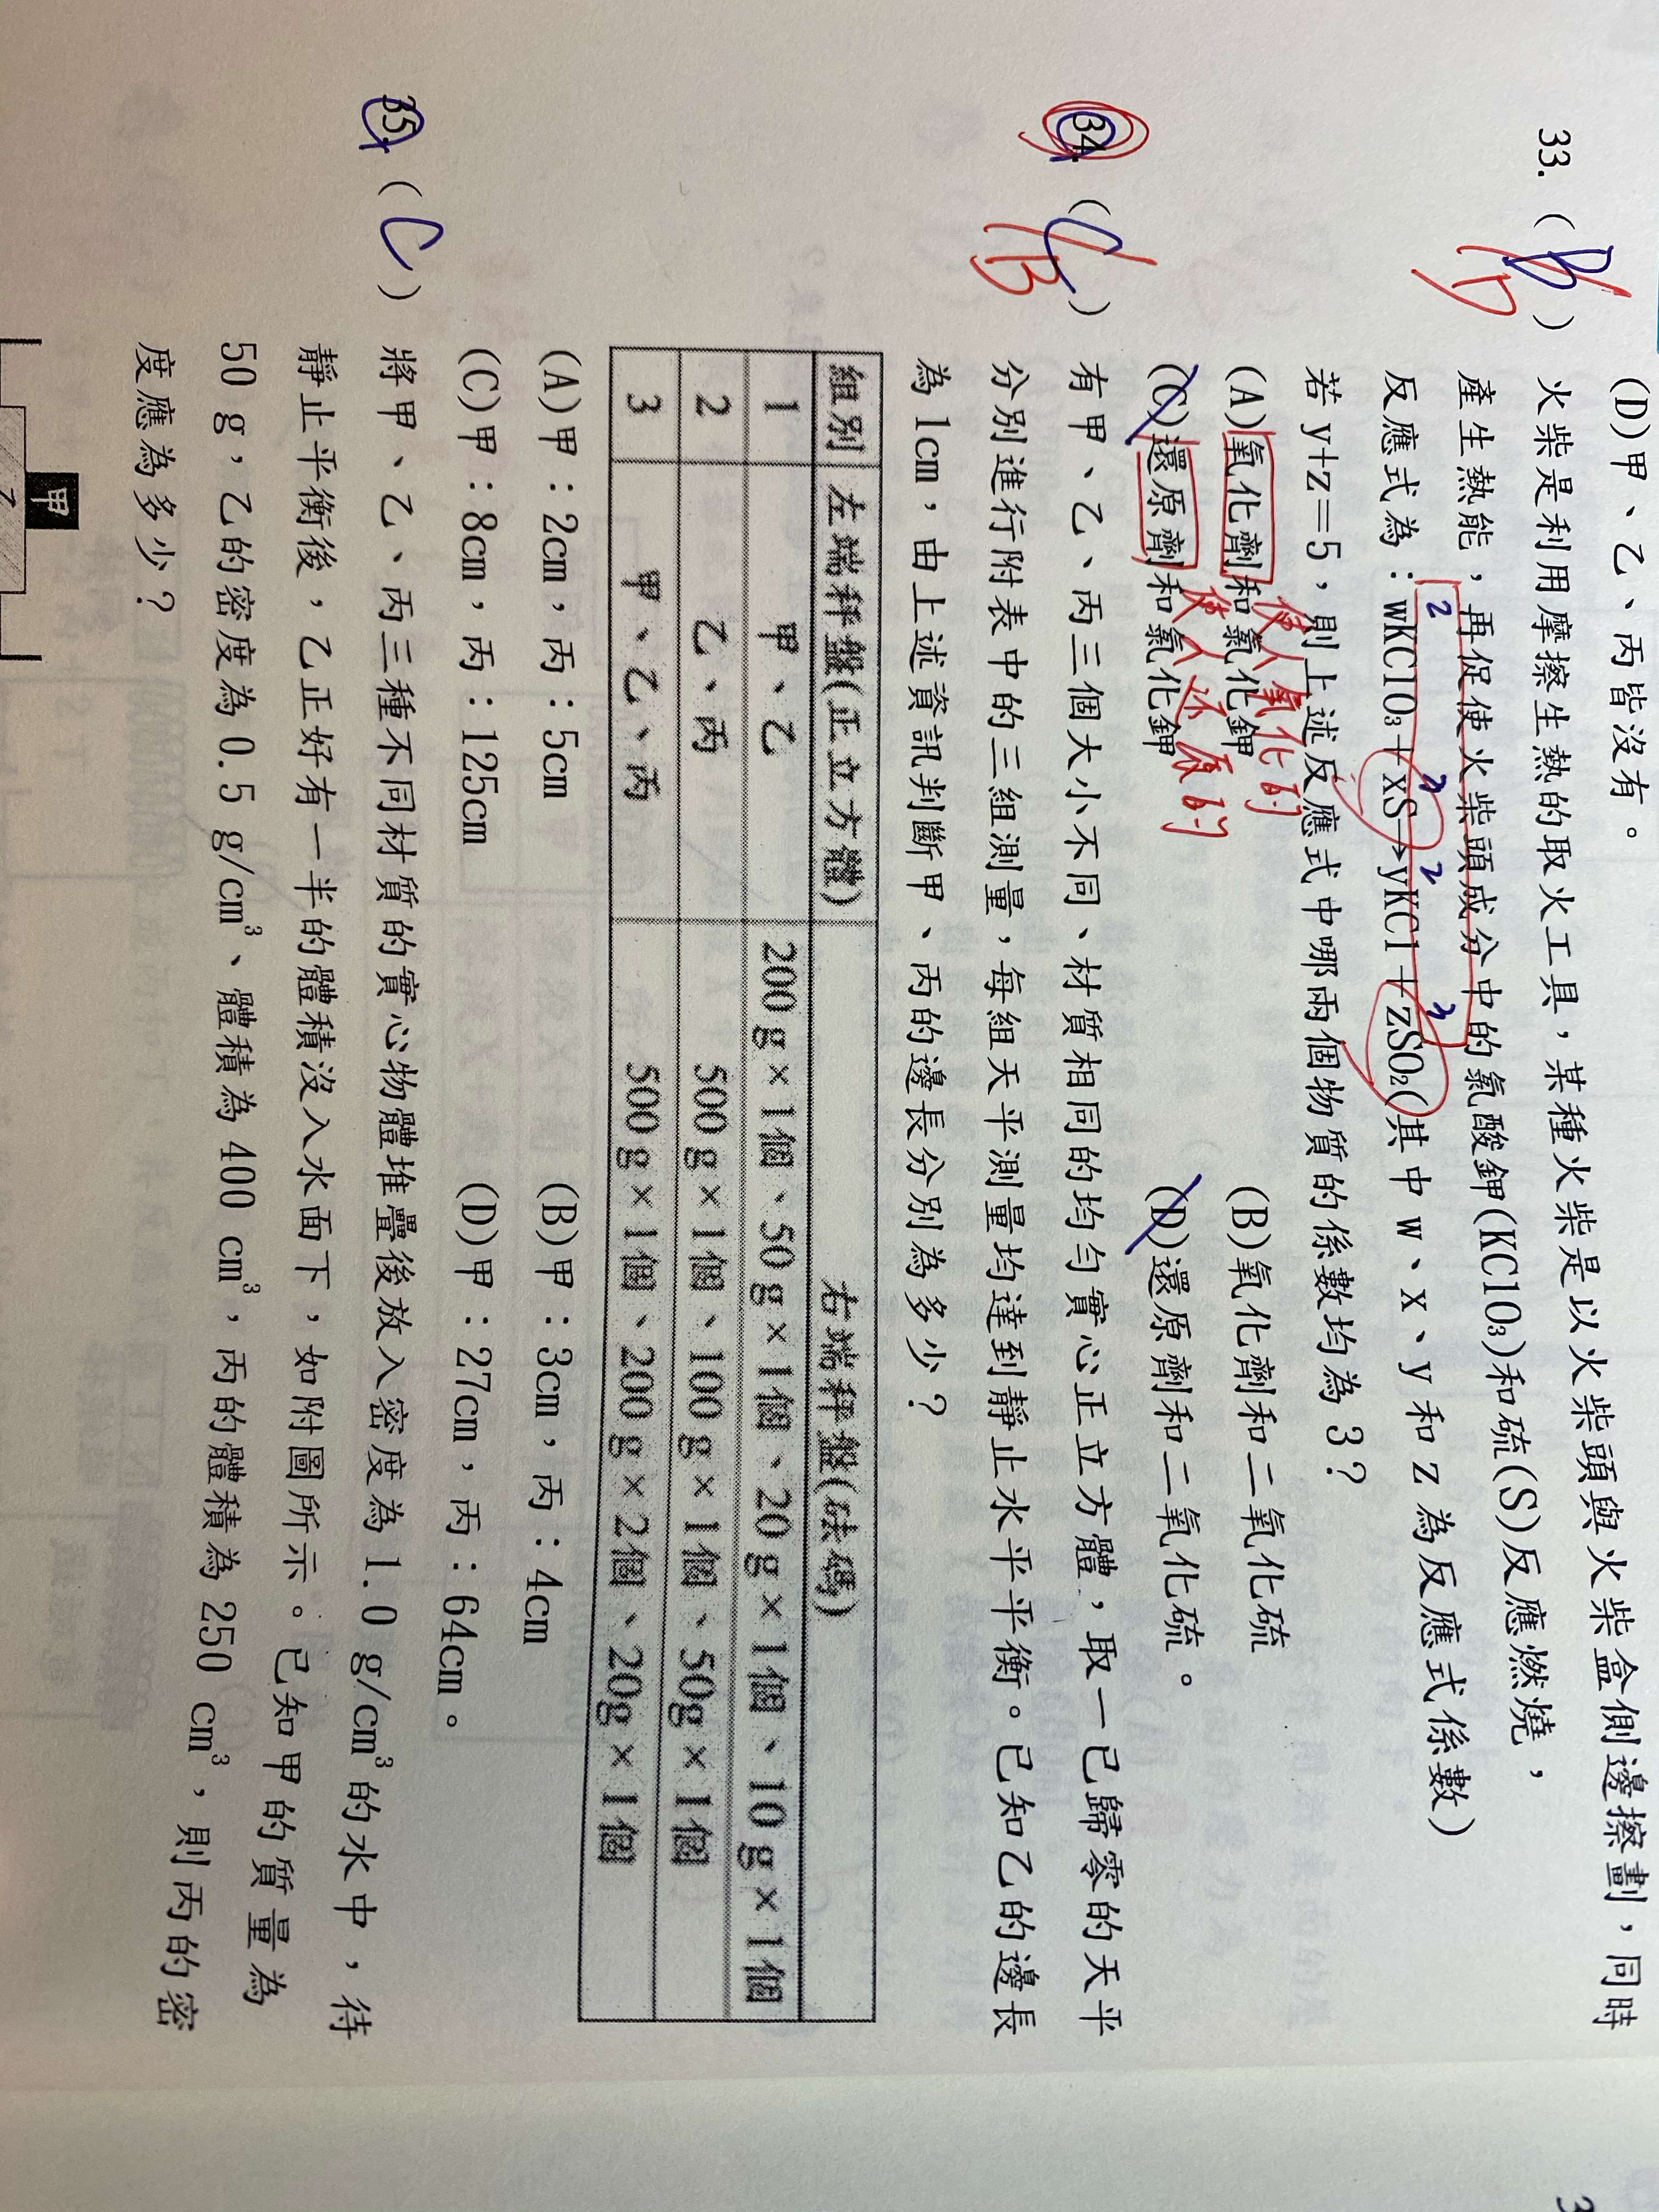 (D)甲、乙、丙皆沒有。
33. ( B ) 火柴是利用摩擦生熱的取火工具，某種火柴是以火柴頭與火柴盒側邊擦劃，同時
D
產生熱能，再促使火柴頭成分中的氯酸鉀(KClO₃)和硫(S)反應燃燒，
2 3 2 3
反應式為：wKClO₃+xS→yKCl+zSO₂(其中 w、x、y 和 z 為反應式係數)
若 y+z=5，則上述反應式中哪兩個物質的係數均為 3？
使人氧化的
(A)氧化劑和氯化鉀 (B)氧化劑和二氧化硫
使人还原的
(C)還原劑和氯化鉀 (D)還原劑和二氧化硫。
34. ( C ) 有甲、乙、丙三個大小不同、材質相同的均勻實心正立方體，取一已歸零的天平
B
分別進行附表中的三組測量，每組天平測量均達到靜止水平平衡。已知乙的邊長
為 1cm，由上述資訊判斷甲、丙的邊長分別為多少？
組別 左端秤盤(正立方體) 右端秤盤(砝碼)
1 甲、乙 200 g × 1個、50 g × 1個、20 g × 1個、10 g × 1個
2 乙、丙 500 g × 1個、100 g × 1個、50g × 1個
3 甲、乙、丙 500 g × 1個、200 g × 2個、20g × 1個
(A)甲：2cm，丙：5cm (B)甲：3cm，丙：4cm
(C)甲：8cm，丙：125cm (D)甲：27cm，丙：64cm。
35. ( C ) 將甲、乙、丙三種不同材質的實心物體堆疊後放入密度為 1.0 g/cm³的水中，待
靜止平衡後，乙正好有一半的體積沒入水面下，如附圖所示。已知甲的質量為
50 g，乙的密度為 0.5 g/cm³、體積為 400 cm³，丙的體積為 250 cm³，則丙的密
度應為多少？
甲
乙